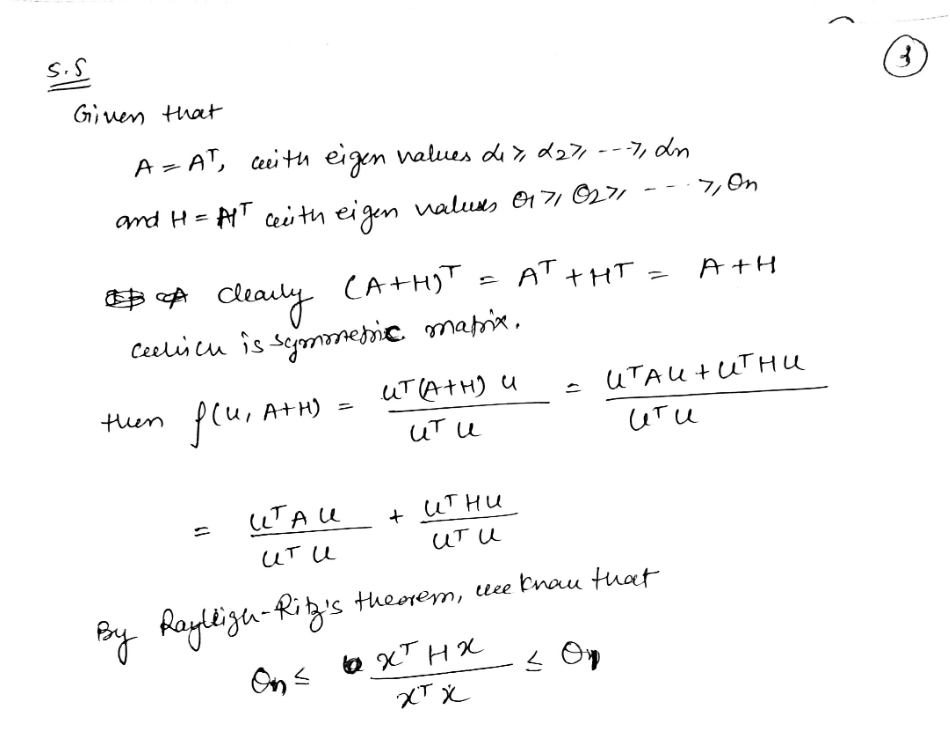 3
S.S
Given that
A = Aᵀ, with eigen values α₁ ⩾ α₂ ⩾ --- ⩾ αn
and H = Hᵀ with eigen values θ₁ ⩾ θ₂ ⩾ --- ⩾ θn
clearly (A+H)ᵀ = Aᵀ + Hᵀ = A + H
which is symmetric matrix.
then ρ(u, A+H) = uᵀ(A+H) u / uᵀ u = uᵀAu + uᵀHu / uᵀ u
= uᵀ A u / uᵀ u + uᵀ H u / uᵀ u
By Rayleigh-Ritz's theorem, we know that
θn ≤ xᵀ H x / xᵀ x ≤ θ₁